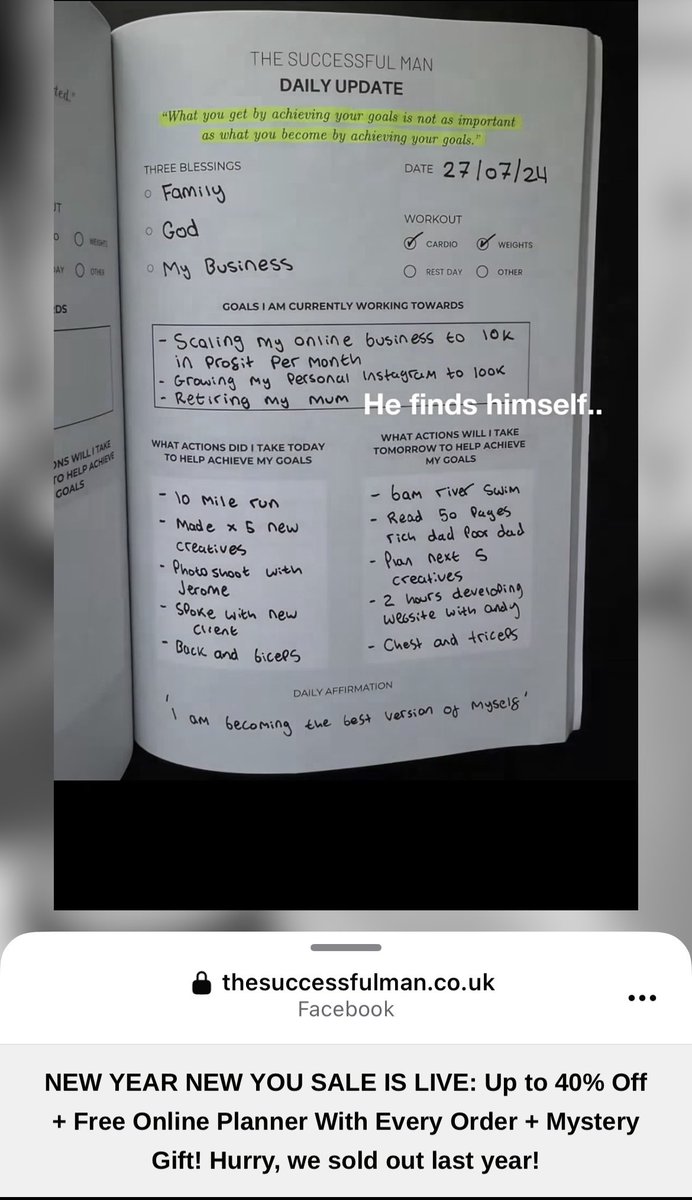 ted."
THE SUCCESSFUL MAN
DAILY UPDATE
"What you get by achieving your goals is not as important
as what you become by achieving your goals."
THREE BLESSINGS
Family
God
My Business
DATE 27/07/24
WORKOUT
CARDIO WEIGHTS
REST DAY OTHER
WEIGHTS
OTHER
GOALS I AM CURRENTLY WORKING TOWARDS
- Scaling my online business to 10K
in Profit Per Month
- Growing my Personal Instagram to 100K
- Retiring my mum
He finds himself..
ONS WILL I TAKE
TO HELP ACHIEVE
GOALS
WHAT ACTIONS DID I TAKE TODAY
TO HELP ACHIEVE MY GOALS
- 10 Mile run
- Made x 5 new
creatives
- Photoshoot with
Jerome
- Spoke with new
Client
- Back and biceps
WHAT ACTIONS WILL I TAKE
TOMORROW TO HELP ACHIEVE
MY GOALS
- 6am river Swim
- Read 50 Pages
rich dad Poor dad
- Plan next 5
creatives
- 2 hours developing
website with andy
- Chest and triceps
DAILY AFFIRMATION
'I am becoming the best version of Myself'
thesuccessfulman.co.uk
Facebook
NEW YEAR NEW YOU SALE IS LIVE: Up to 40% Off
+ Free Online Planner With Every Order + Mystery
Gift! Hurry, we sold out last year!